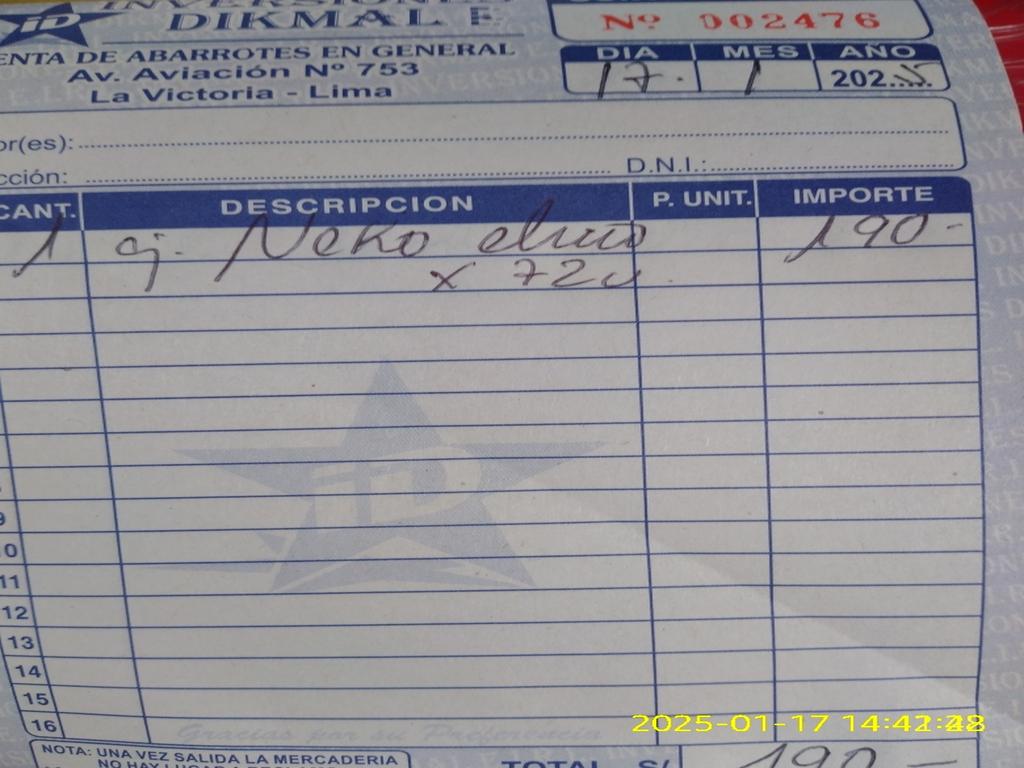 INVERSIONES
DIKMAL E
ENTA DE ABARROTES EN GENERAL
Av. Aviación Nº 753
La Victoria - Lima
Nº 002476
DIA MES AÑO
17. 1 2025
or(es):
cción: D.N.I.:
CANT. DESCRIPCION P. UNIT. IMPORTE
1 cj. Neko 190-
x 72u.
9
10
11
12
13
14
15
16
Gracias por su Preferencia
2025-01-17
NOTA: UNA VEZ SALIDA LA MERCADERIA
TOTAL S/ 190-